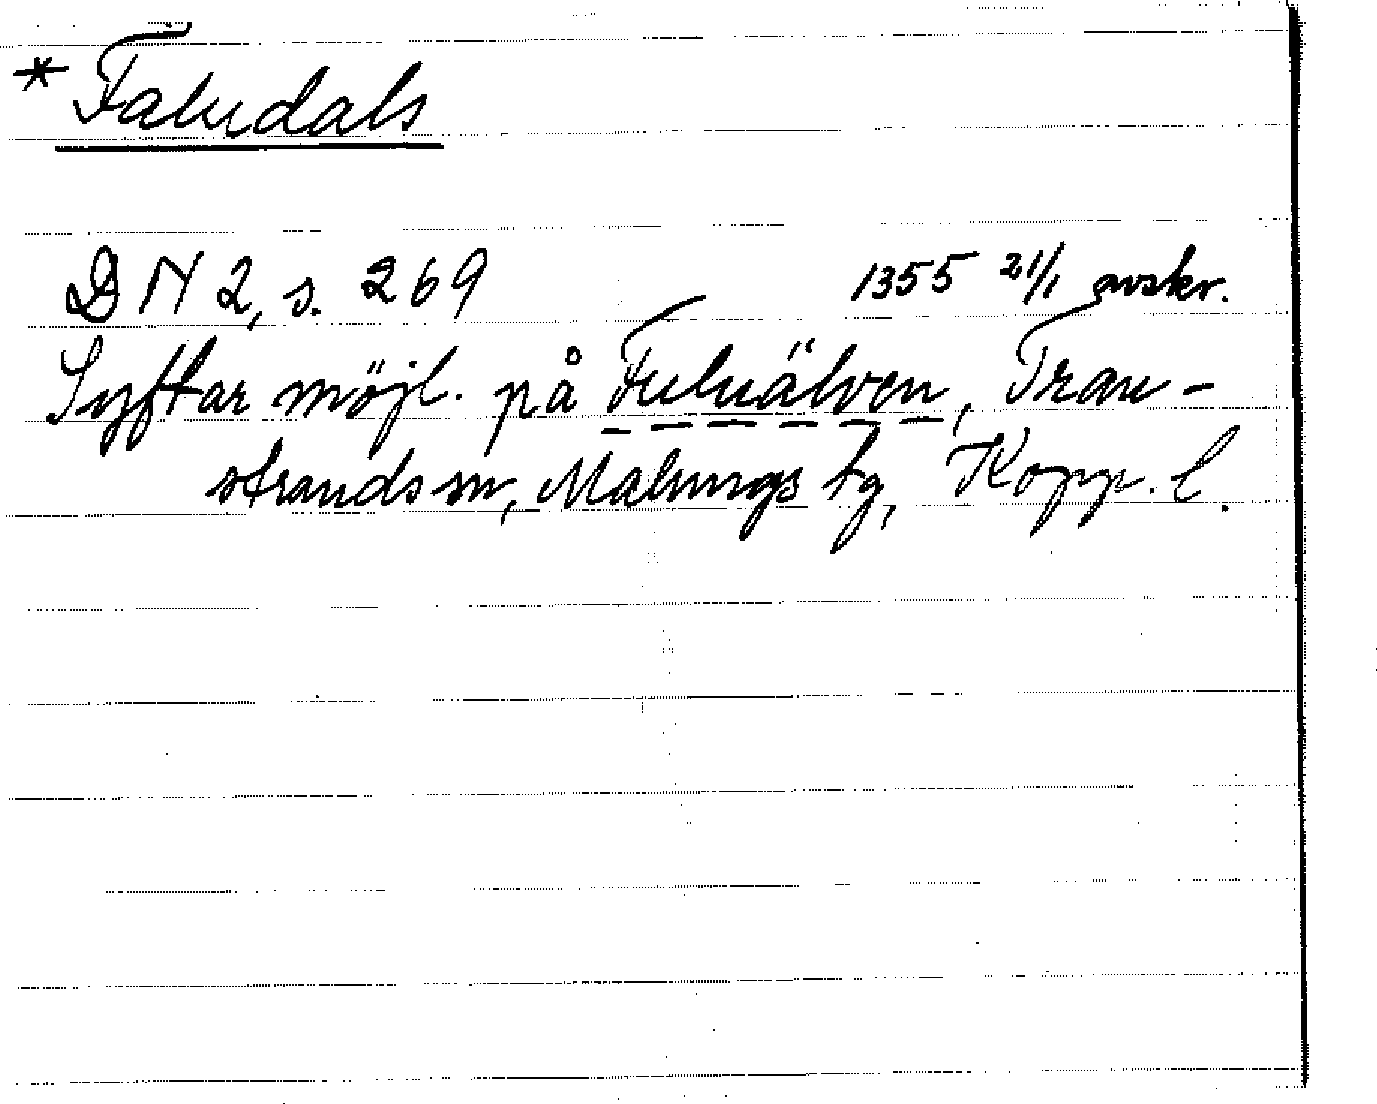 * Faludals
DN 2, s. 269 1355 21/1 avskr.
Syftar möjl. på Fuluälven, Tran-
strands sn, Malungs tg, Kopp. l.